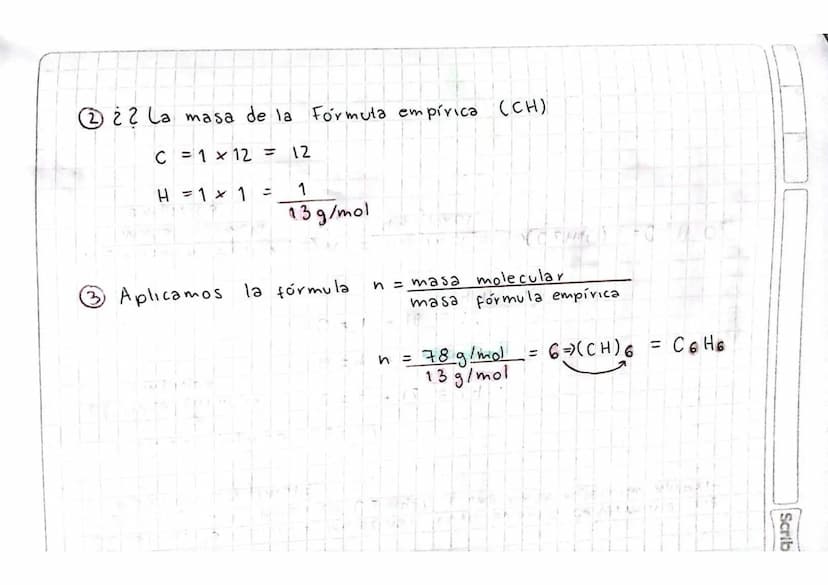 ② ¿? La masa de la Fórmula empírica (CH)
C = 1 x 12 = 12
H = 1 x 1 = 1
13 g/mol
③ Aplicamos la fórmula n = masa molecular / masa fórmula empírica
n = 78 g/mol / 13 g/mol = 6 ⇒ (CH)6 = C6H6
Scrib